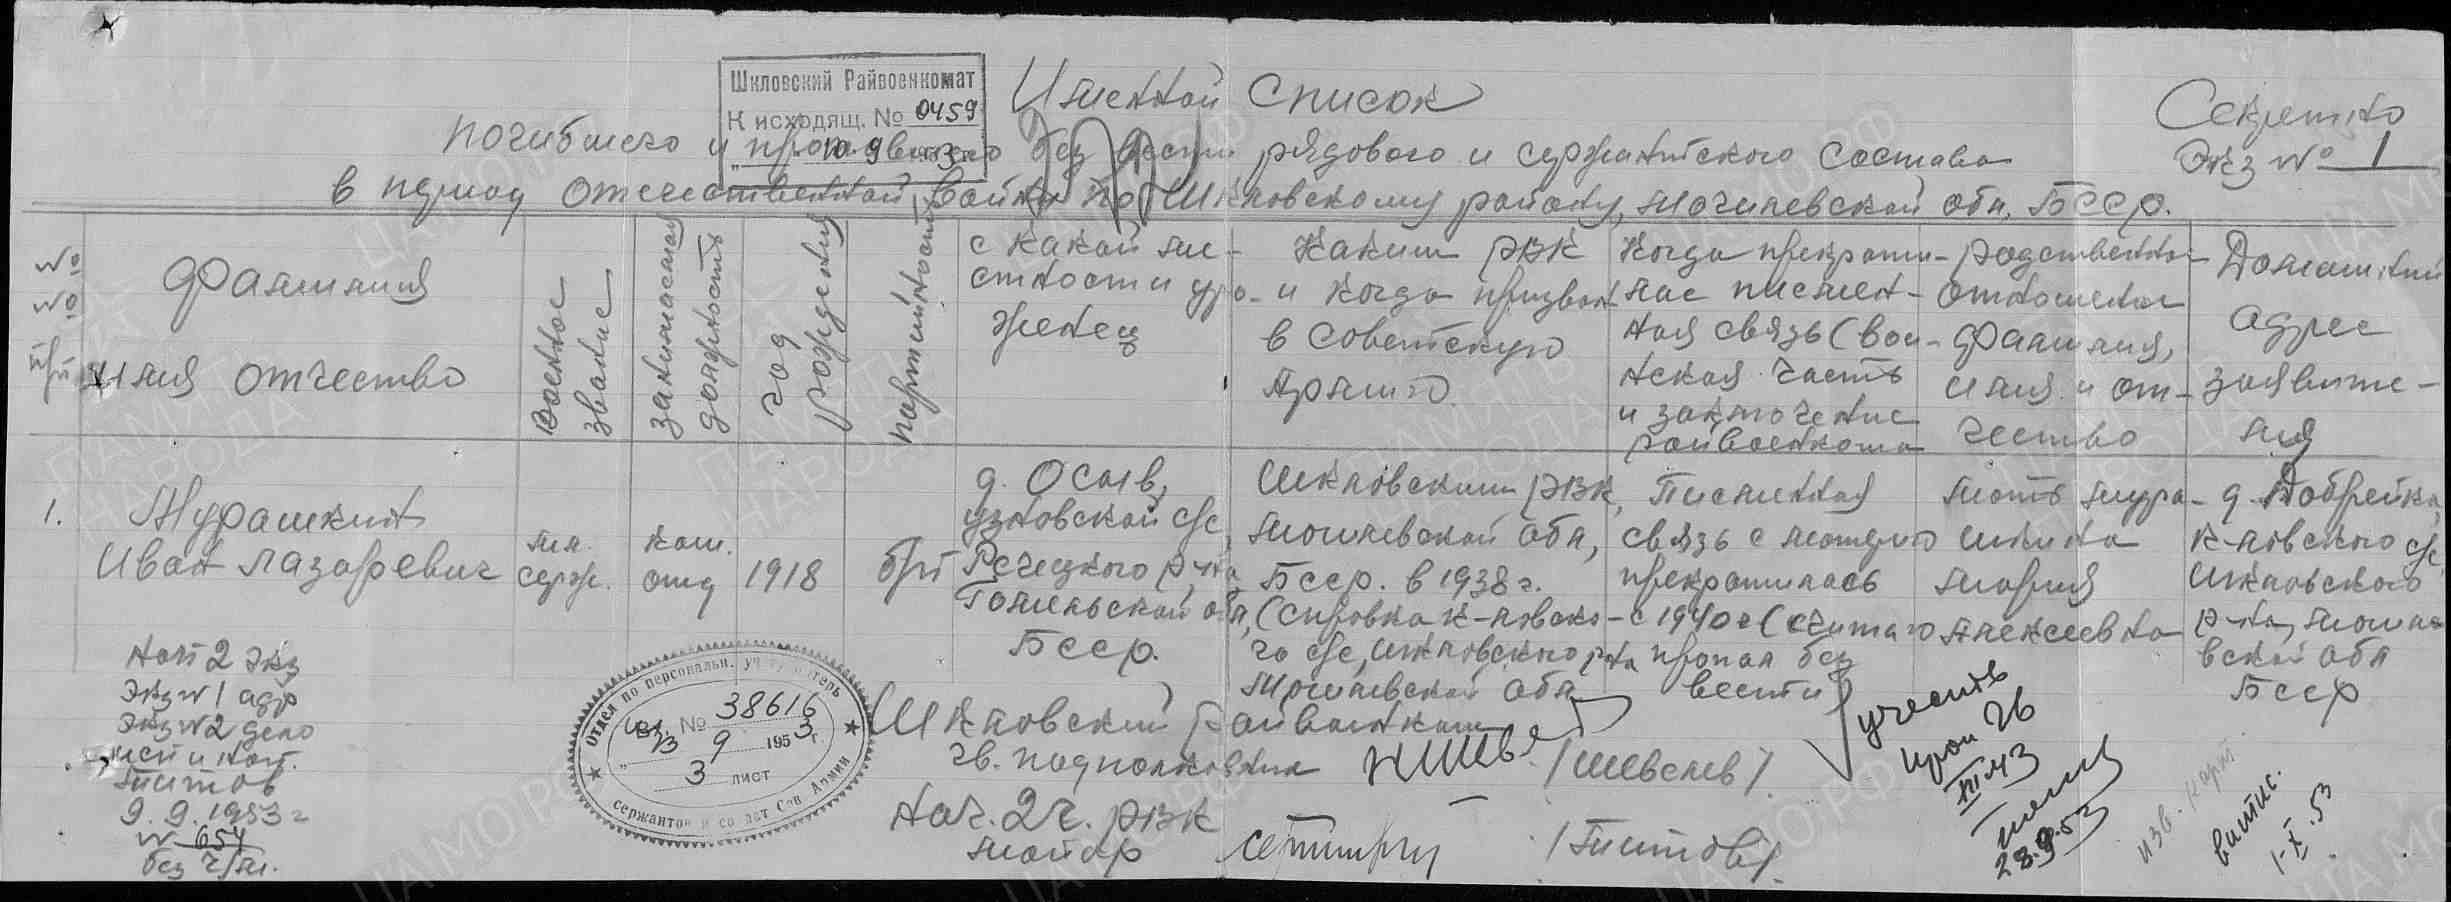 Шкловский Райвоенкомат
К исходящ. № 0459
Именной список
Секретно
Экз № 1
погибшего и без вести рядового и сержантского состава
в период отечественной войны по Шкловскому району, Могилевской обл, БССР.
№ № п/п
Фамилия
имя отчество
Военное звание
занимаемая должность
год рождения
партийность
с какой местности уроженец
Каким РВК и когда призван в Советскую Армию
Когда прекратилась письменная связь (воинская часть и заключение райвоенкома
родственное отношение фамилия, имя и отчество
Домашний адрес заявителя
1.
Мурашкин
Иван Лазаревич
мл. серж.
ком. отд
1918
б/п
д.
Узновской с/с,
Речецкого р-на,
Гомельской обл,
БССР.
Шкловским РВК,
Могилевской обл,
БССР. в 1938 г.
(справка
го с/с, Шкловского р-на
Могилевской обл
Письменная
связь с матерью
прекратилась
с 1940 г (считаю
пропал без
вести)
мать Мура-
шкина
Мария
Алексеевна
д. Добрейка,
с/с,
Шкловского
р-на, Могиле-
вской обл
БССР
Шкловский райвоенком
гв. подполковник
/Шевелев/.
Нач. 2 ч. РВК
майор
/Титов/.
Нап 2 экз
Экз № 1 адр
Экз № 2 дело
исп и нап.
Титов
9.9.1953 г
№ 654
без ч/м.
Отдел по персональн. учету потерь
сержантов и солдат Сов. Армии
№ 38616
9 1953 г.
3 лист
учесть
28.9.53
изв.
1-X.53
ПАМЯТЬ НАРОДА
ЦАМО РФ